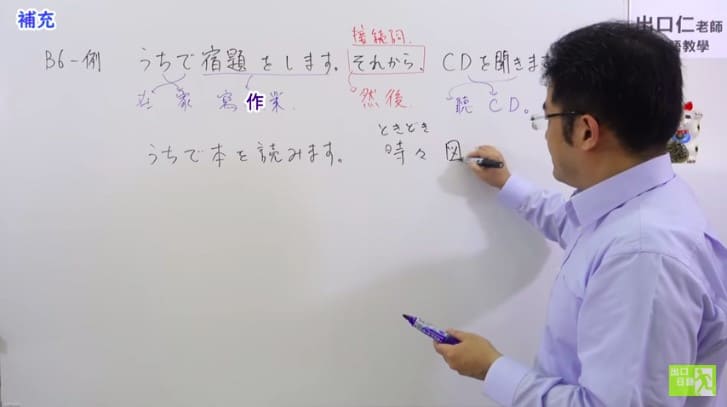 補充
出口仁老師
語教學
接続詞
B6-例 うちで宿題をします。それから、CDを聞きま
在 家 寫作業. 然後 聽 CD。
ときどき
うちで本を読みます。 時々 図
出口
日語